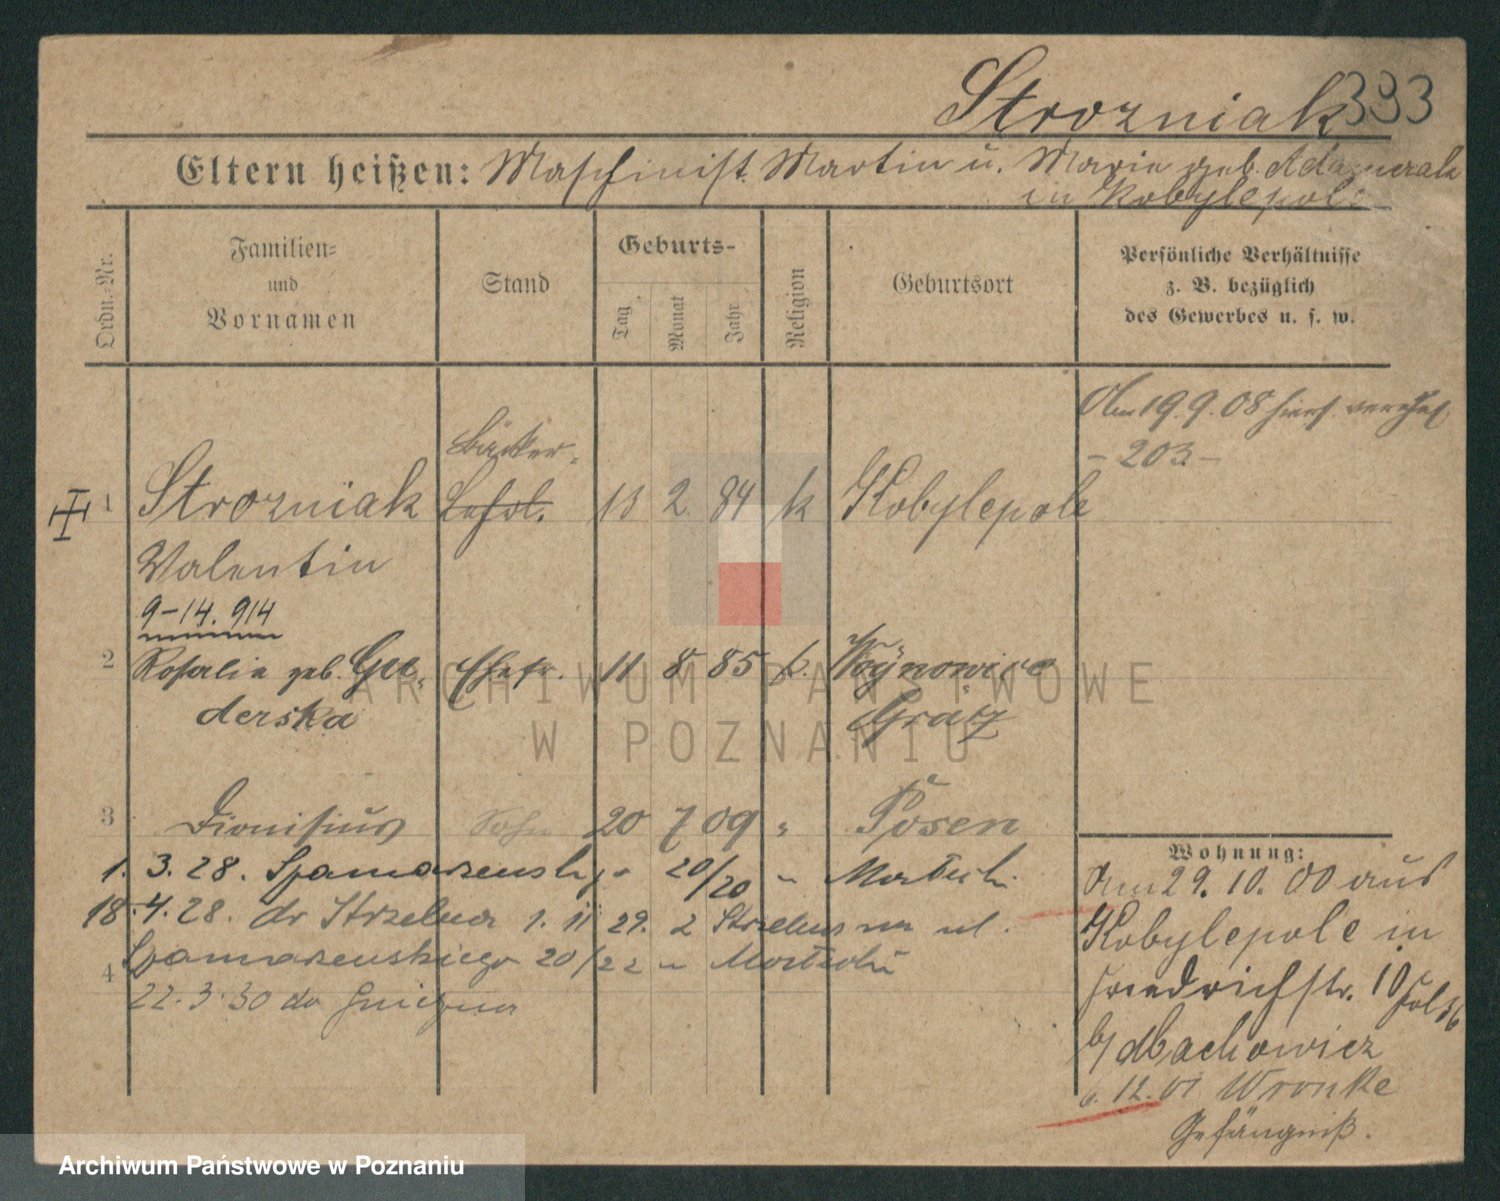 Strozniak 393
Eltern heißen: Maschinist Martin u. Marie geb. Adamczak
in Kobylepole
Ordn.-Nr.
Familien-
und
Vornamen
Stand
Geburts-
Tag
Monat
Jahr
Religion
Geburtsort
Persönliche Verhältnisse
z. B. bezüglich
des Gewerbes u. s. w.
Am 19.9.08 hiers.
- 203 -
Bäcker-
1 Strozniak Lehrl. 13 2 84 k Kobylepole
Valentin
9-14. 914
2 Rosalie geb. Gu- Ehefr. 11 8 85 k. Woynowice
derska Grätz
3 Dionisius Sohn 20 7 09 " Posen
1. 3. 28. 20/20 "
18.4.28. do Strzelna 1. 11 29. 2 Strzelna na ul.
4 20/22
22.3.30 do Gniezna
Wohnung:
Am 29.10.00 aus
Kobylepole in
Friedrichstr. 10
b/ Machowicz
6.12.01 Wronke
Gefängniß.
ARCHIWUM PAŃSTWOWE
W POZNANIU
Archiwum Państwowe w Poznaniu